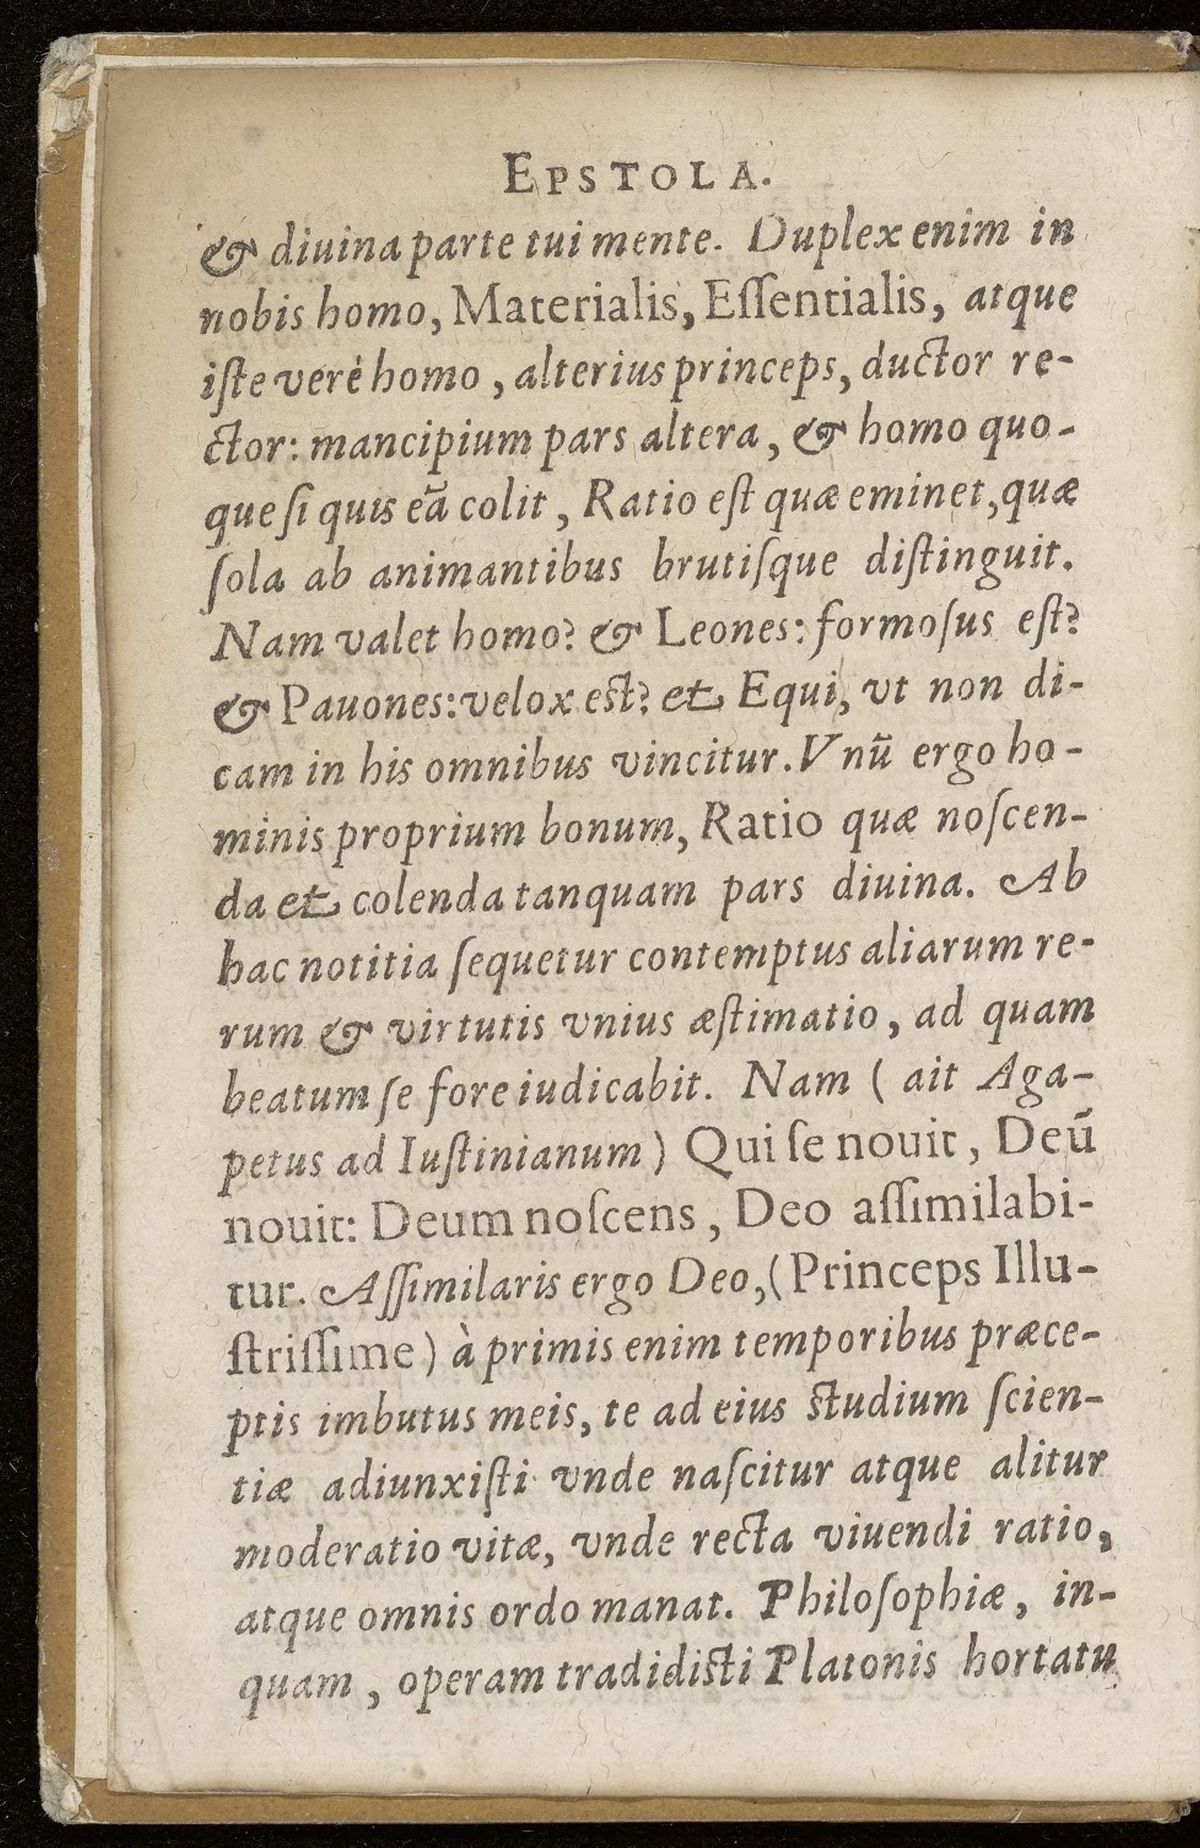 EPSTOLA.
& diuina parte tui mente. Duplex enim in
nobis homo, Materialis, Eſſentialis, atque
iſte verè homo, alterius princeps, ductor re-
ctor: mancipium pars altera, & homo quo-
que ſi quis eā colit, Ratio eſt quæ eminet, quæ
ſola ab animantibus brutiſque diſtinguit.
Nam valet homo? & Leones: formoſus eſt?
& Pauones: velox eſt? et Equi, vt non di-
cam in his omnibus vincitur. Vnū ergo ho-
minis proprium bonum, Ratio quæ noſcen-
da et colenda tanquam pars diuina. Ab
hac notitia ſequetur contemptus aliarum re-
rum & virtutis vnius æſtimatio, ad quam
beatum ſe fore iudicabit. Nam ( ait Aga-
petus ad Iuſtinianum ) Qui ſe nouit, Deū
nouit: Deum noſcens, Deo aſſimilabi-
tur. Aſſimilaris ergo Deo, (Princeps Illu-
ſtriſſime) à primis enim temporibus præce-
ptis imbutus meis, te ad eius ſtudium ſcien-
tiæ adiunxiſti vnde naſcitur atque alitur
moderatio vitæ, vnde recta viuendi ratio,
atque omnis ordo manat. Philoſophiæ, in-
quam, operam tradidiſti Platonis hortatu